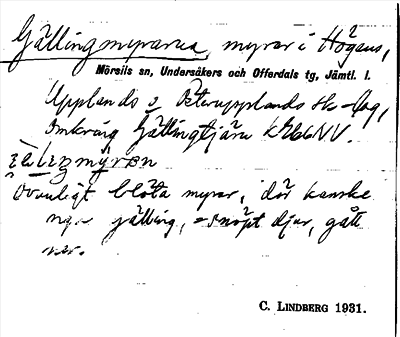 Gällingmyrarna, myrar i Högåns,
Mörsils sn, Undersåkers och Offerdals tg, Jämtl. l.
Upplands o. Österupplands sk-lag,
omkring Gällingtjärn
Ovanligt blöta myrar, där kanske
gälling, = snöpt djur, gått
ner.
C. LINDBERG 1931.